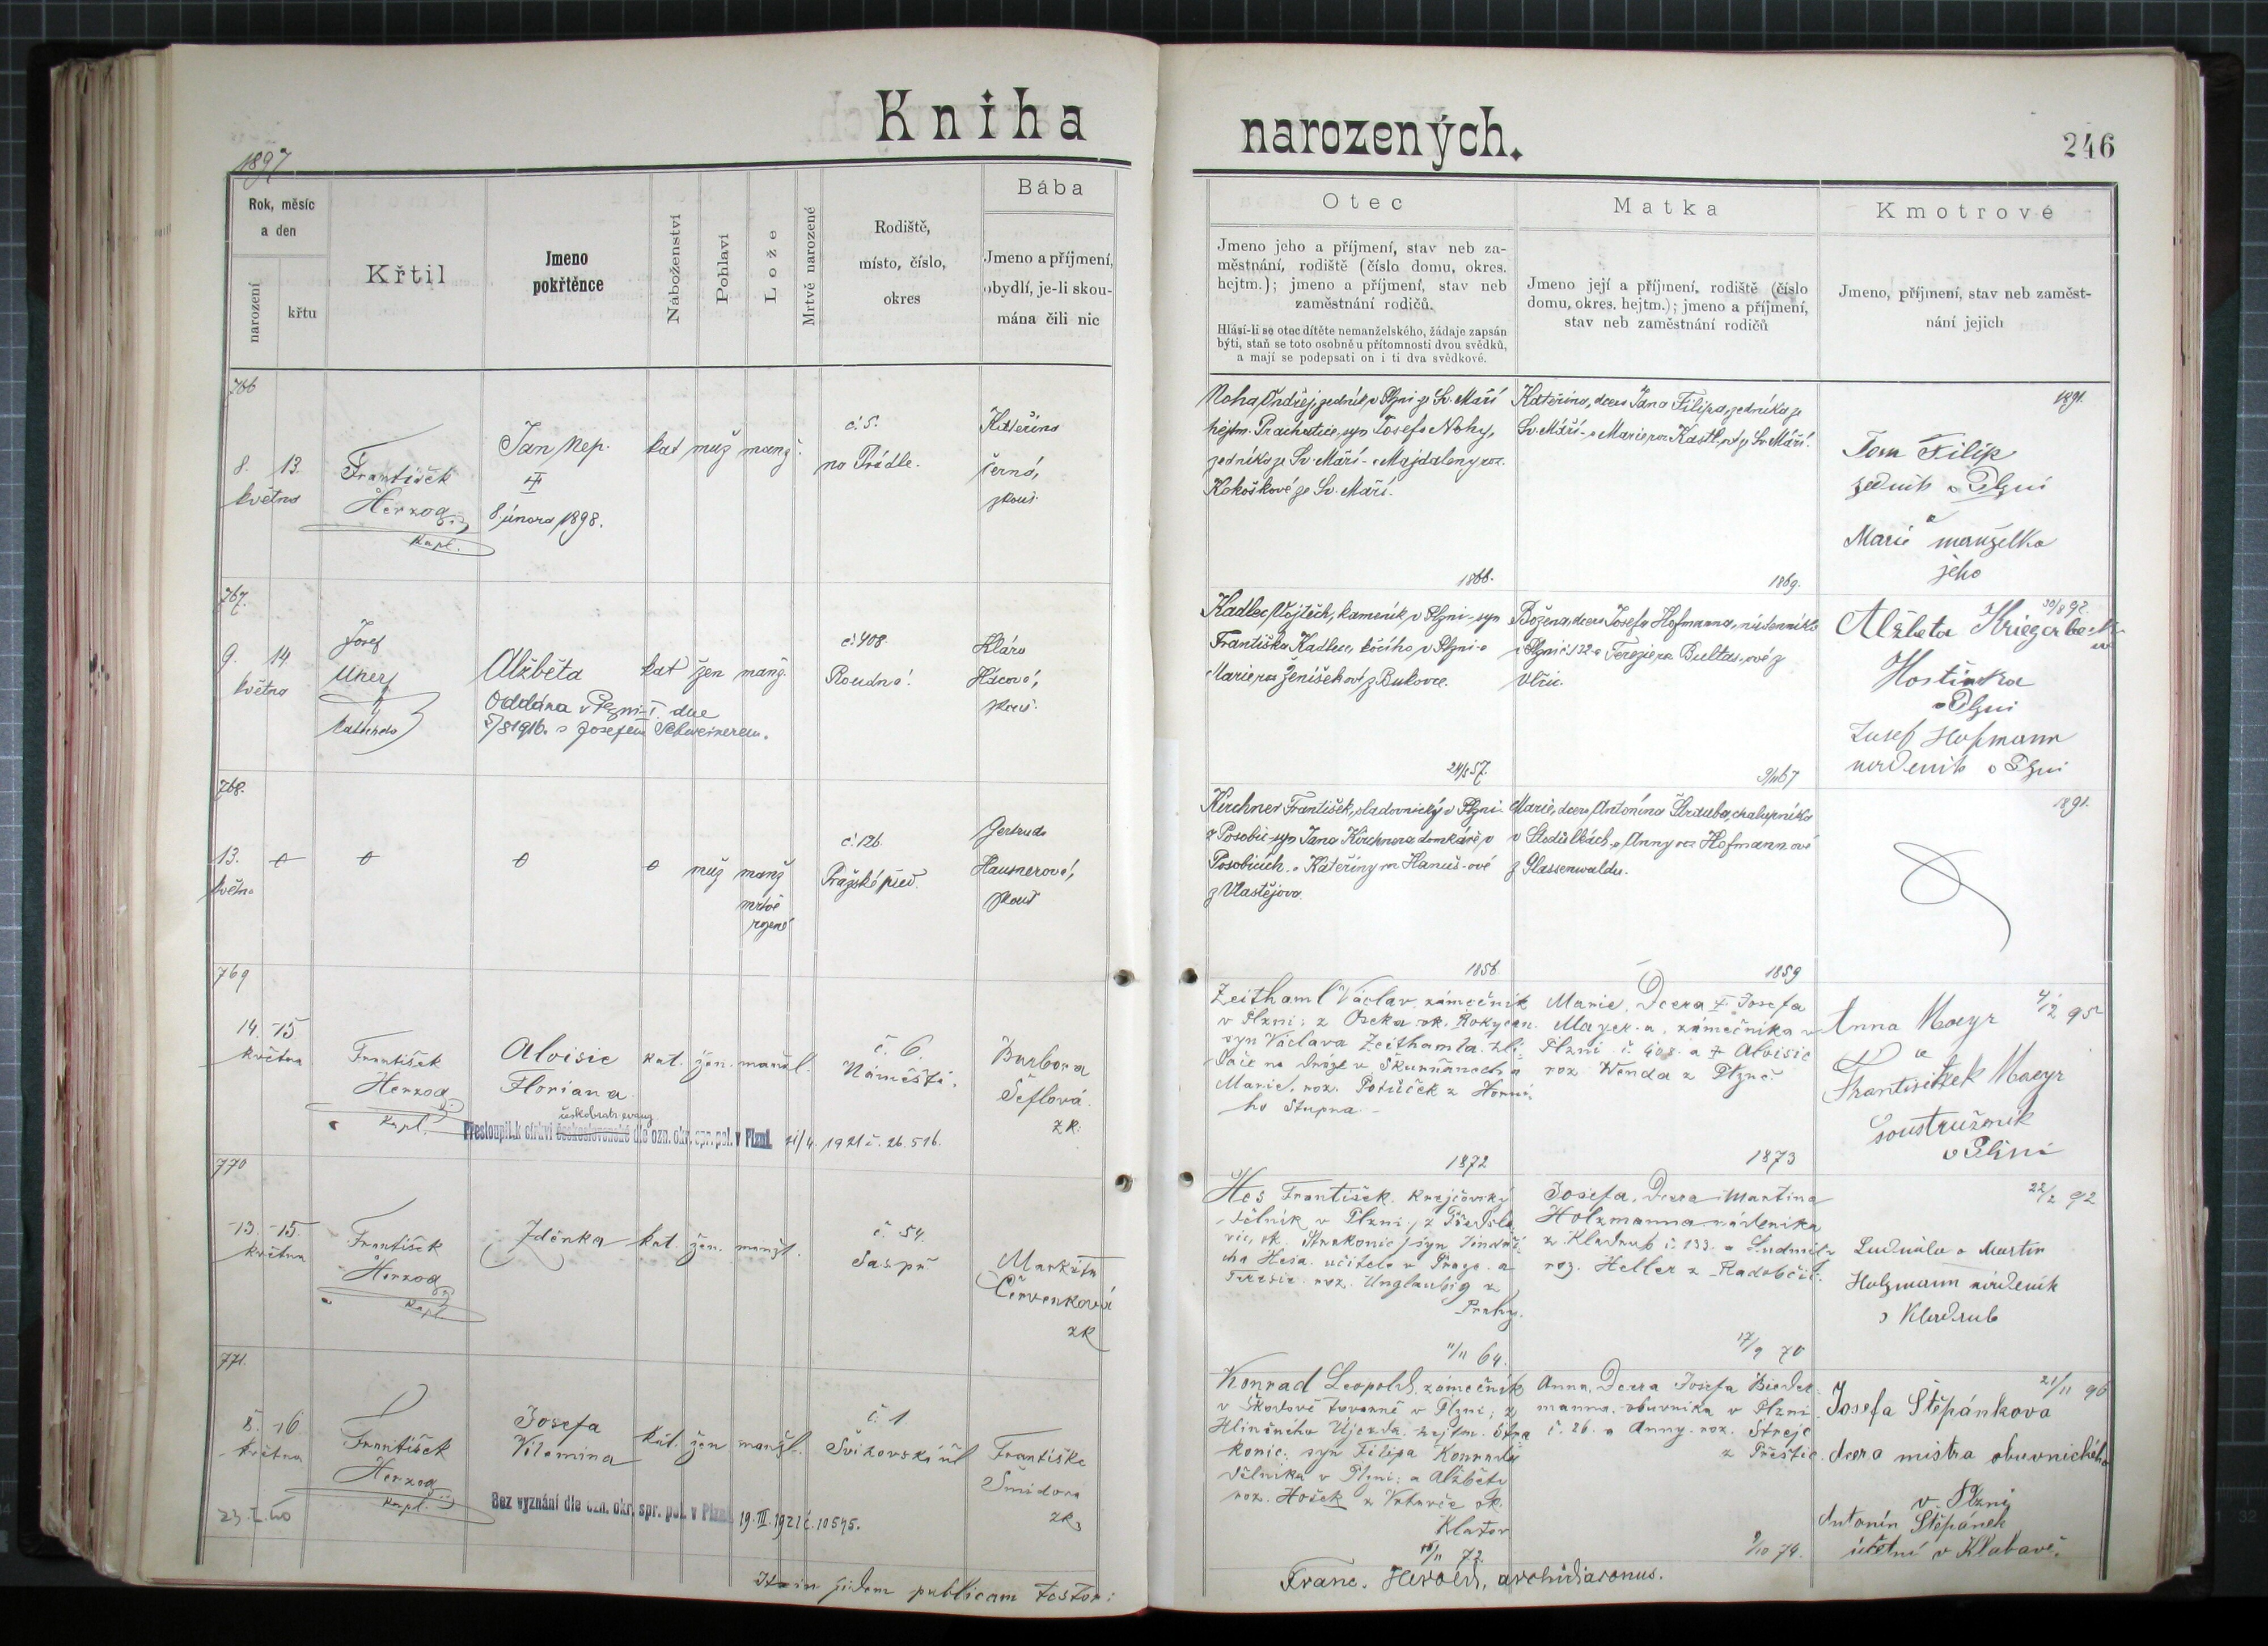 Kniha
narozených.
246
1897
Rok, měsíc
a den
narození
křtu
Křtil
Jmeno
pokřtěnce
Náboženství
Pohlaví
Lože
Mrtvě narozené
Rodiště,
místo, číslo,
okres
Bába
Jmeno a příjmení,
obydlí, je-li skou-
mána čili nic
Otec
Jmeno jeho a příjmení, stav neb za-
městnání, rodiště (číslo domu, okres.
hejtm.); jmeno a příjmení, stav neb
zaměstnání rodičů.
Hlásí-li se otec dítěte nemanželského, žádaje zapsán
býti, staň se toto osobně u přítomnosti dvou svědků,
a mají se podepsati on i ti dva svědkové.
Matka
Jmeno její a příjmení, rodiště (číslo
domu, okres. hejtm.); jmeno a příjmení,
stav neb zaměstnání rodičů
Kmotrové
Jmeno, příjmení, stav neb zaměst-
nání jejich
766
8. 13.
května
František
Herzog
kapl.
Jan Nep.
8. února 1898.
kat muž manž.
č. 5.
na Prádle.
Kateřina
černá,
zkouš.
Noha Ondřej, zedník v Plzni ze Sv. Máří
hejtm. Prachatice, syn Josefa Nohy,
zedníka ze Sv. Máří a Majdaleny roz.
Kokoškové ze Sv. Máří.
1866.
Kateřina, dcera Jana Filipa, zedníka ze
Sv. Máří a Marie roz. Kastl ze Sv. Máří.
1869.
1891.
Jan Filip
zedník v Plzni
a
Marie manželka
jeho
767.
9. 14
května
Josef
Uherf
Alžběta
kat žen manž.
Oddána v Plzni I. dne
5/8 1916. s Josefem Schweinerem.
č. 408.
Roudná.
Klára
Hácová,
zkouš.
Kadlec Vojtěch, kameník v Plzni syn
Františka Kadlece, kočího v Plzni a
Marie roz. Ženíšek ové z Bukovce.
24/4 57.
Božena, dcera Josefa Hofmanna, nádenníka
v Plzni č. 122 a Terezie roz. Bultas ové z
Vlčic.
30/8 92.
Hostinska
v Plzni
Josef Hofmann
nádeník v Plzni
768.
13.
května
muž manž
mrtvě
rozené
č. 126.
Pražské před.
Gertruda
Hausnerová,
zkouš
Kirchner František, sladovnický v Plzni
z Posobic syn Jana Kirchnera domkáře v
Posobicích a Kateřiny roz. Hanuš ové
z Vlastějova.
1856.
v Stodůlkách a Anny roz. Hofmann ové
z Glassenwaldu.
1859
1891.
769
14. 15
května
František
Herzog
kapl.
Aloisie
Floriana
kat. žen. manžl.
č. 6.
Náměstí.
Barbora
Šeflová
zk.
českobratr. evang.
Přestoupil k církvi československé dle ozn. okr. spr. pol. v Plzni 21/4 1921 č. 26.516.
Zeithaml Václav, zámečník
v Plzni; z Oseka ok. Rokycan.
syn Václava Zeithamla, zří-
zence na dráze v Skvrňanech a
Marie, roz. Potůček z Horní-
ho Stupna.
1872
Marie, dcera † Josefa
Mayer-a, zámečníka v
Plzni č. 408. a † Aloisie
roz. Wenda z Plzně.
1873
4/2 95
Anna Maeyr
a
Frantisek Maeyr
soustružník
v Plzni
770
13. 15.
května
František
Herzog
kapl.
Zdénka kat. žen. manžl.
č. 54.
Saspí
Markéta
Červenková
zk
Hes František, krejčovský
dělník v Plzni, z Předsla-
vic, ok. Strakonic, syn Jindři-
cha Hesa, učitele v Praze a
Teresie roz. Unglaubig z
Prahy.
11/11 64.
Josefa, dcera Martina
Holzmanna nádeníka
z Kladrub č. 133. a Ludmily
roz. Heller z Radobčic.
17/9 70
22/2 92
Ludmila a Martin
Holzmann nádeník
z Kladrub
771.
8. 16.
května
František
Herzog
kapl.
Josefa
Vilemina
kat. žen manžl.
č. 1
Švihovská ul
Františka
Šmídová
zk.
Bez vyznání dle ozn. okr. spr. pol. v Plzni 19. III. 1921 č. 10545.
Konrad Leopold, zámečník
v Škodově továrně v Plzni; z
Hliněného Újezda, hejtm. Stra-
konic; syn Filipa Konrada
dělníka v Plzni; a Alžběty
roz. Hošek z Vrhavče ok.
Klatov
10/11 72.
Anna, dcera Josefa Bieder-
manna, obuvníka v Plzni
č. 26. a Anny roz. Strejc
z Přeštic.
9/10 74.
21/11 96
Josefa Štěpánkova
dcera mistra obuvnického
v Plzni
Antonín Štěpánek
účetní v Klabavě.
in fidem publicam testor:
Franc. Herold, archidiaconus.